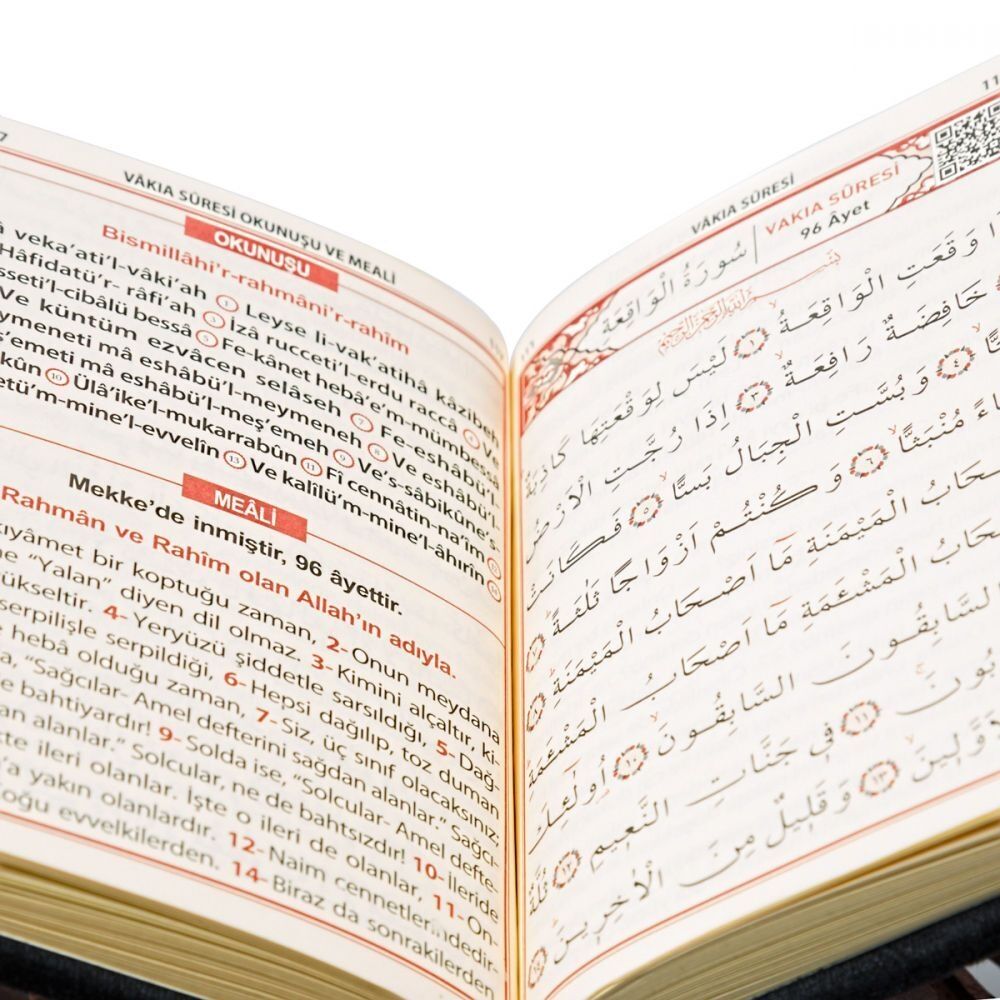 VÂKIA SÛRESİ OKUNUŞU VE MEALİ
OKUNUŞU
Bismillâhi'r-rahmâni'r-rahîm
veka'ati'l-vâki'ah ① Leyse li-vak'atihâ kâzibeh
Hâfidatü'r- râfi'ah ③ İzâ rucceti'l-erdu raccâ ④ Ve
sseti'l-cibâlü bessâ ⑤ Fe-kânet hebâ'e'm-mümbessâ
Ve küntüm ezvâcen selâseh ⑦ Fe-eshâbü'l-
ymeneti mâ eshâbü'l-meymeneh ⑧ Ve eshâbü'l-
ş'emeti mâ eshâbü'l-meş'emeh ⑨ Ve's-sâbikûne's-
kûn ⑩ Ülâ'ike'l-mukarrabûn ⑪ Fî cennâtin-na'îm ⑫
etü'm-mine'l-evvelîn ⑬ Ve kalîlü'm-mine'l-âhırîn ⑭
MEÂLİ
Mekke'de inmiştir, 96 âyettir.
Rahmân ve Rahîm olan Allah'ın adıyla.
kıyâmet bir koptuğu zaman, 2- Onun meydana
ne "Yalan" diyen dil olmaz. 3- Kimini alçaltır, ki-
ükseltir. 4- Yeryüzü şiddetle sarsıldığı, 5- Dağ-
serpilişle serpildiği, 6- Hepsi dağılıp, toz duman
e hebâ olduğu zaman, 7- Siz, üç sınıf olacaksınız;
a, "Sağcılar- Amel defterini sağdan alanlar." Sağcı-
e bahtiyardır! 9- Solda ise, "Solcular- Amel defte-
an alanlar." Solcular, ne de bahtsızdır! 10- İleride
te ileri olanlar. İşte o ileri de olanlar, 11- On-
'a yakın olanlardır. 12- Naim cennetlerindedir-
Çoğu evvelkilerden. 14- Biraz da sonrakilerden
VÂKIA SÛRESİ
11
سُورَةُ الْوَاقِعَةِ
VAKIA SÛRESİ
96 Âyet
وَقَعَتِ الْوَاقِعَةُ ١ لَيْسَ لِوَقْعَتِهَا كَاذِبَةٌ
خَافِضَةٌ رَافِعَةٌ ٣ اِذَا رُجَّتِ الْاَرْضُ
٤ وَبُسَّتِ الْجِبَالُ بَسًّا ٥ فَكَانَتْ
مُنْبَثًّا ٦ وَكُنْتُمْ اَزْوَاجًا ثَلٰثَةً ٧
حَابُ الْمَيْمَنَةِ مَٓا اَصْحَابُ الْمَيْمَنَةِ ٨
حَابُ الْمَشْـَٔمَةِ مَٓا اَصْحَابُ الْمَشْـَٔمَةِ
السَّابِقُونَ السَّابِقُونَ ١٠ اُولٰٓئِكَ
بُونَ ١١ فِي جَنَّاتِ النَّعِيمِ ١٢ ثُلَّةٌ
وَّلِينَ ١٣ وَقَلِيلٌ مِنَ الْاٰخِرِينَ ١٤